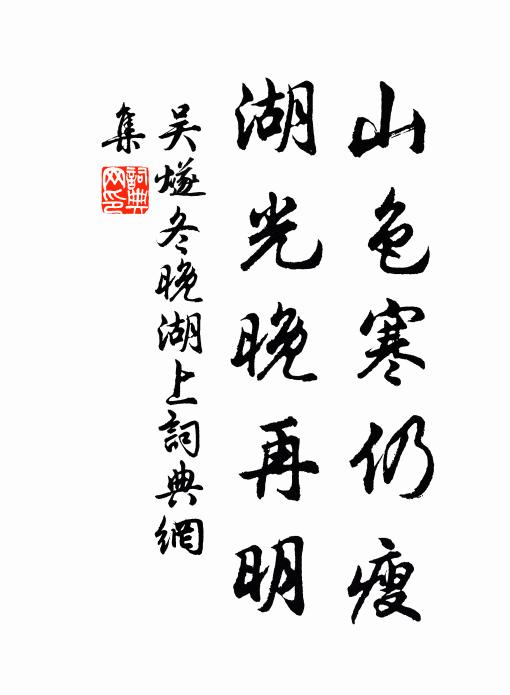 山色寒仍瘦
湖光晚再明
吴燧冬晚湖上詞典網
集
詞典網印